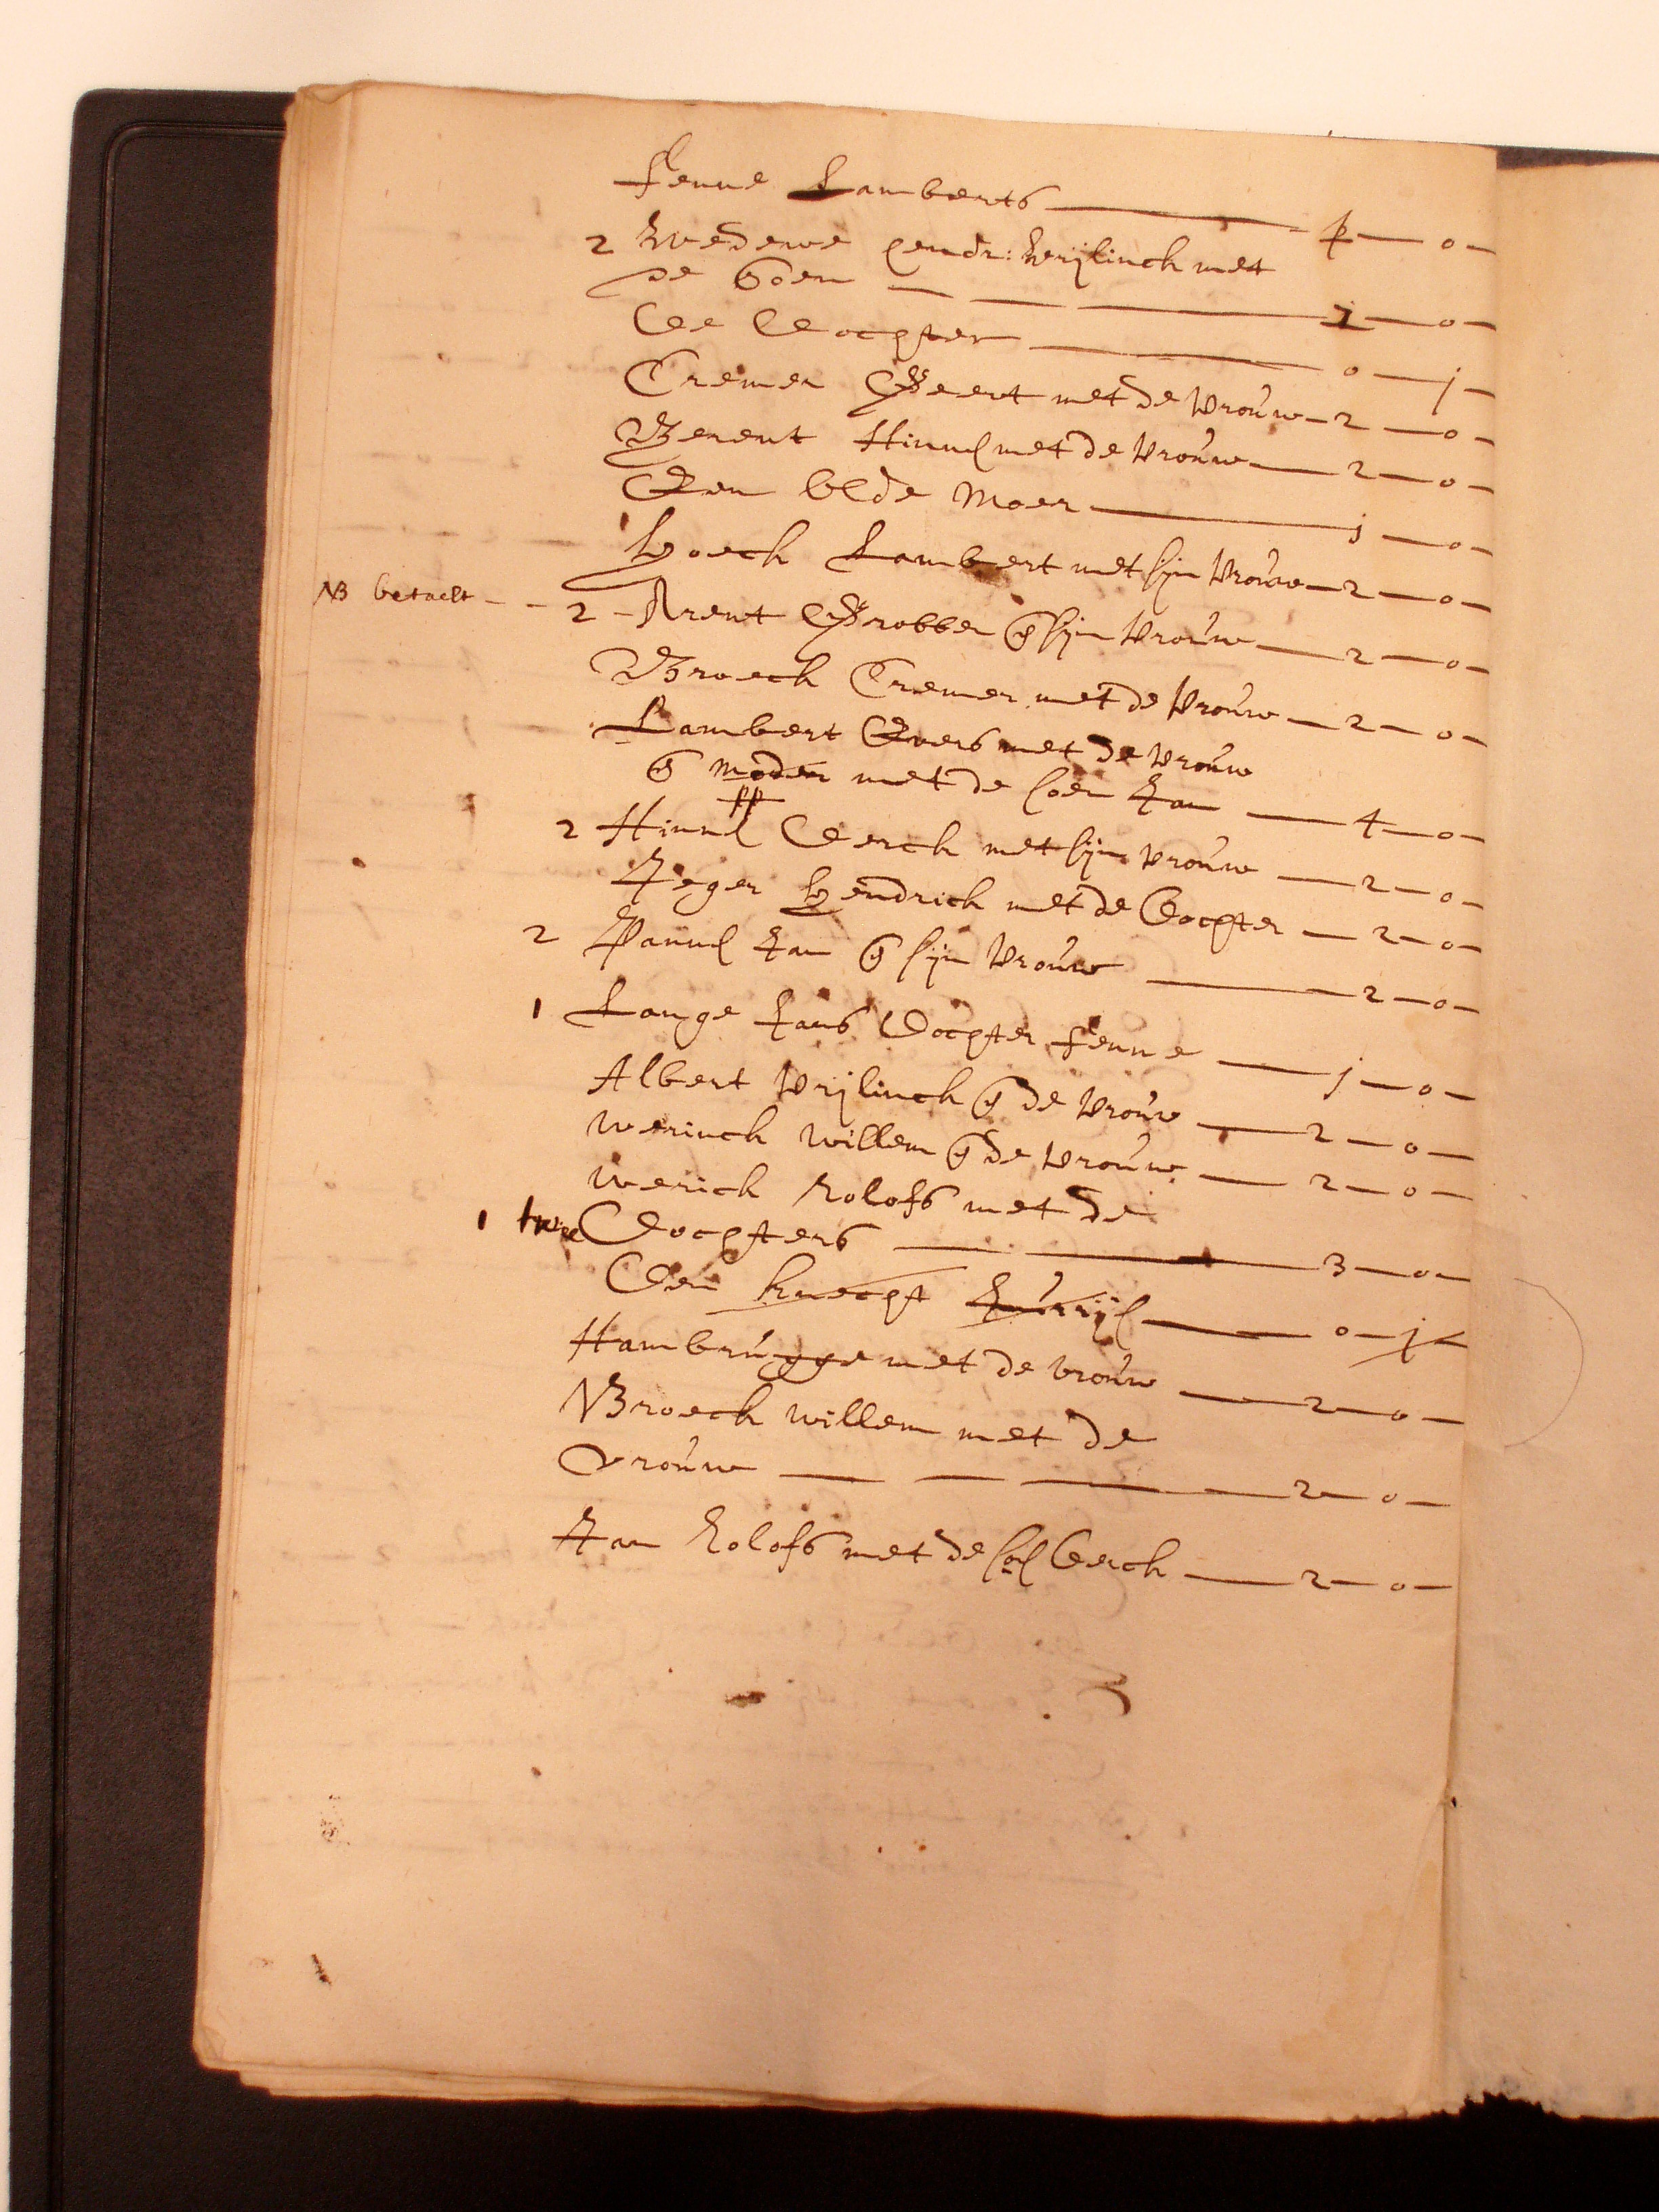 Fenne Lamberts — 1 — 0 —
2 Wedewe Hendr: Krijlinch met
de Soen — — — 1 — 0 —
De Dochter — 0 — 1 —
Cremer Geert met de vrouw — 2 — 0 —
Berent Hinr met de vrouw — 2 — 0 —
Een olde moer — 1 — 0 —
Hoech Lambert met sijn vrouw — 2 — 0 —
NB betaelt - - 2 - Arent Grobben en sijn vrouw — 2 — 0 —
Broech Cremer met de vrouw — 2 — 0 —
Lambert Evers met de vrouw
en moder met de soen Jan — 4 — 0 —
2 Hinr Derck met sijn vrouw — 2 — 0 —
Jeger Hendrick met de Dochter — 2 — 0 —
2 Jan en sijn vrouw — 2 — 0 —
1 Lange Jans Dochter Fenne — 1 — 0 —
Albert Vrijlinck en de vrouw — 2 — 0 —
Werinck Willem en de vrouw — 2 — 0 —
Werick Rolofs met de
1 twee Dochters — — 3 — 0 —
Een knecht — 0 — 1 —
Hambrugge met de vrouw — 2 — 0 —
Broeck Willem met de
vrouw — — — 2 — 0 —
Jan Rolofs met de soen Derck — 2 — 0 —